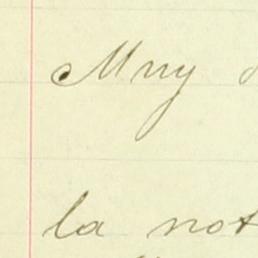 Muy
la not